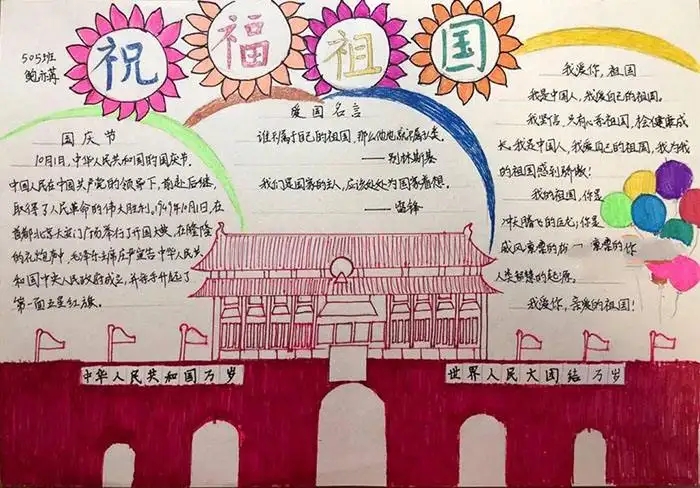 祝福祖国
505班
鲍亦苒
国庆节
10月1日,中华人民共和国的国庆节。
中国人民在中国共产党的领导下,前赴后继,
取得了人民革命的伟大胜利。1949年10月1日,在
首都北京天安门广场举行了开国大典,在隆隆
的礼炮声中,毛泽东主席庄严宣告中华人民共
和国中央人民政府成立,并亲手升起了
第一面五星红旗。
爱国名言
谁不属于自己的祖国,那么他也就不属于人类。
——别林斯基
我们是国家的主人,应该处处为国家着想。
——雷锋
我爱你,祖国
我是中国人,我爱自己的祖国。
我坚信,只有心系祖国,
健康成
长。我是中国人,我爱自己的祖国,我为我
的祖国感到骄傲!
我的祖国,你是
冲天腾飞的巨龙;你是
威风凛凛的
你
人类智慧的起源。
我爱你,亲爱的祖国!
中华人民共和国万岁
世界人民大团结万岁